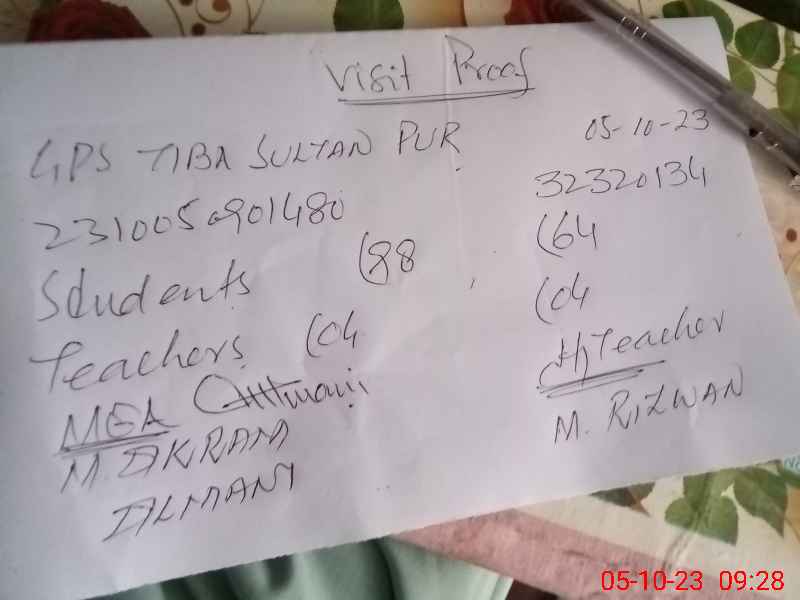 Visit Proof
GPS TIBA SULTAN PUR 05-10-23
2310050901480 32320134
Students (88 (64
Teachers (04 (04
MEA H/Teacher
M. AKRAM M. RIZWAN
05-10-23 09:28